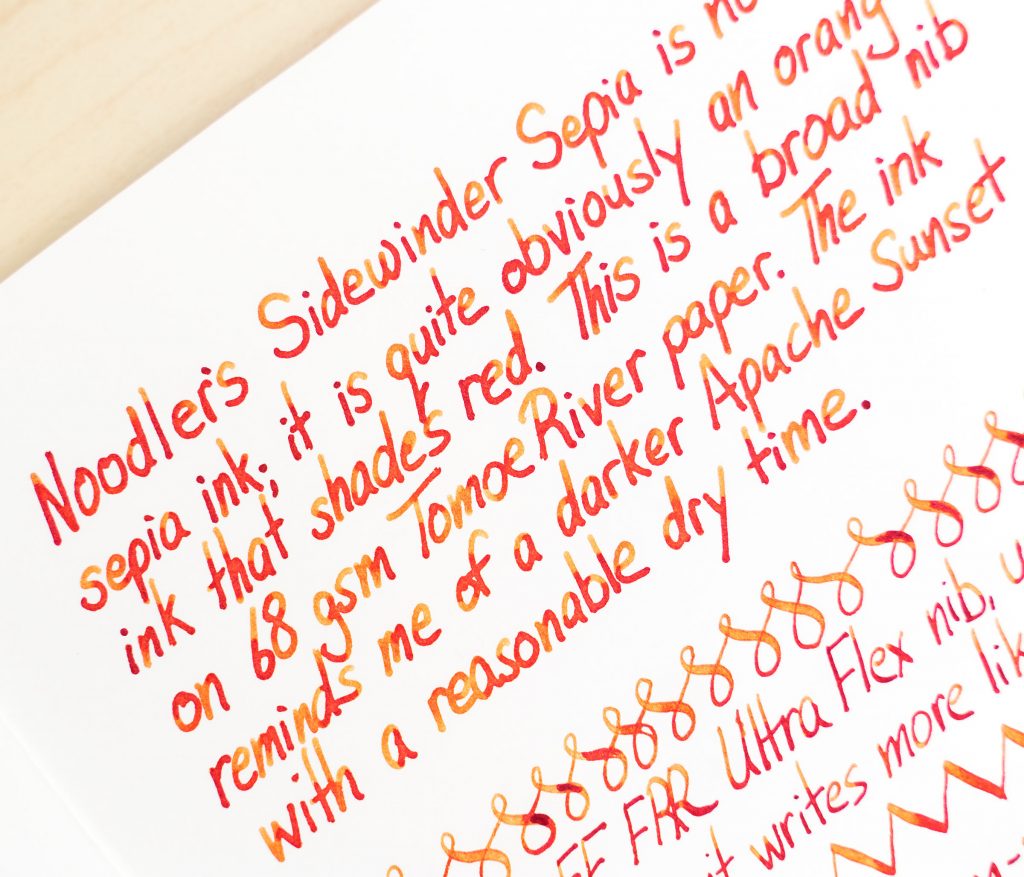 Noodler's Sidewinder Sepia is
sepia ink; it is quite obviously an orang
ink that shades red. This is a broad nib
on 68 gsm Tomoe River paper. The ink
reminds me of a darker Apache Sunset
with a reasonable dry time.
FRR Ultra Flex nib,
it writes more